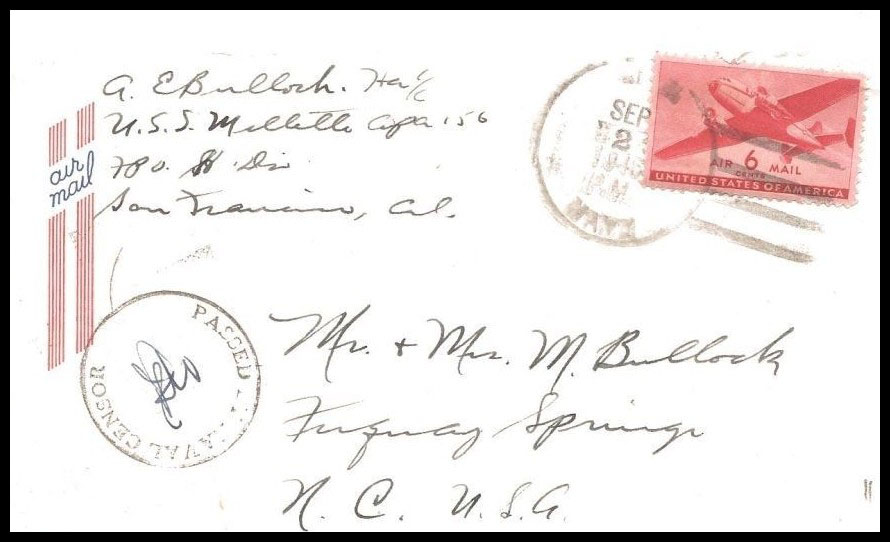 A. E Bullock. Ha 1/c
U.S.S. Mellette Apa 156
F.P.O. H Div
San Francisco, Cal.
air
mail
SEP
2
1945
A.M.
NAVY
AIR 6 MAIL
CENTS
UNITED STATES OF AMERICA
PASSED BY NAVAL CENSOR
Mr. + Mrs. M. Bullock
Fuquay Springs
N. C. U.S.A.